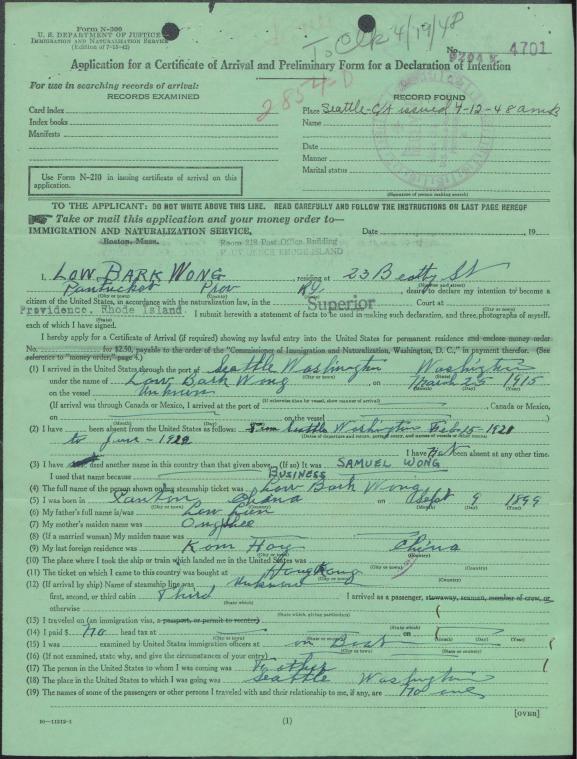 Form N-300
U. S. DEPARTMENT OF JUSTICE
IMMIGRATION AND NATURALIZATION SERVICE
(Edition of 7-15-42)
To Clk 4/19/48
No. 4701
Application for a Certificate of Arrival and Preliminary Form for a Declaration of Intention
For use in searching records of arrival:
RECORDS EXAMINED
Card index
Index books
Manifests
2854-D
RECORD FOUND
Place Seattle - C/A issued 4-12-48
Name
Date
Manner
Marital status
(Signature of person making search)
Use Form N-210 in issuing certificate of arrival on this application.
TO THE APPLICANT: DO NOT WRITE ABOVE THIS LINE. READ CAREFULLY AND FOLLOW THE INSTRUCTIONS ON LAST PAGE HEREOF
Take or mail this application and your money order to—
IMMIGRATION AND NATURALIZATION SERVICE, Date , 19
Boston, Mass. Room 218 Post Office Building
PROVIDENCE RHODE ISLAND
I, LOW BARK WONG, residing at 23 Beatty St
Pawtucket Prov , desire to declare my intention to become a
citizen of the United States, in accordance with the naturalization law, in the Superior Court at
Providence, Rhode Island. I submit herewith a statement of facts to be used in making such declaration, and three photographs of myself,
each of which I have signed.
I hereby apply for a Certificate of Arrival (if required) showing my lawful entry into the United States for permanent residence and enclose money order
No. for $2.50, payable to the order of the "Commissioner of Immigration and Naturalization, Washington, D. C.," in payment therefor. (See
reference to "money order," page 4.)
(1) I arrived in the United States through the port of Seattle Washington Washington
under the name of Low Bark Wong, on March 25 1915
on the vessel Unknown
(If otherwise than by vessel, show manner of arrival)
(If arrival was through Canada or Mexico, I arrived at the port of , Canada or Mexico,
on on the vessel )
(2) I have been absent from the United States as follows: From Seattle Washington Feb-15-1921
to June-1922
(Dates of departure and return, ports of entry, and names of vessels or other means)
I have not been absent at any other time.
(3) I have used another name in this country than that given above. (If so) It was SAMUEL WONG
I used that name because BUSINESS
(4) The full name of the person shown on steamship ticket was Low Bark Wong
(5) I was born in Canton China on Sept 9 1899
(6) My father's full name is/was Low Gun
(7) My mother's maiden name was Ong Shee
(8) (If a married woman) My maiden name was
(9) My last foreign residence was Kom Hoy China
(10) The place where I took the ship or train which landed me in the United States was
(11) The ticket on which I came to this country was bought at Hong Kong
(12) (If arrival by ship) Name of steamship line was Unknown
first, second, or third cabin Third I arrived as a passenger, stowaway, seaman, member of crew, or
otherwise
(State which, giving particulars)
(13) I traveled on (an immigration visa, a passport, or permit to reenter)
(14) I paid $ no head tax at on
(15) I was examined by United States immigration officers at on Boat
(16) (If not examined, state why, and give the circumstances of your entry)
(17) The person in the United States to whom I was coming was
(18) The place in the United States to which I was going was Seattle Washington
(19) The names of some of the passengers or other persons I traveled with and their relationship to me, if any, are no one
[OVER]
(1)